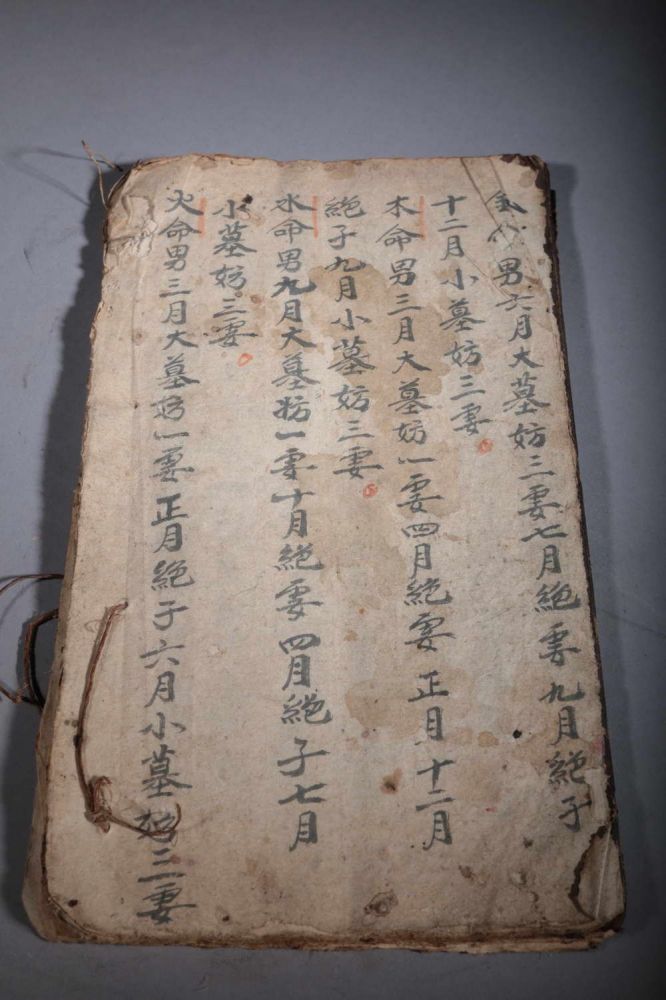 金命男六月大墓妨三妻七月絶妻九月絶子
十二月小墓妨三妻
木命男三月大墓妨一妻四月絶妻正月十二月
絶子九月小墓妨三妻
水命男九月大墓妨一妻十月絶妻四月絶子七月
小墓妨三妻
火命男三月大墓妨一妻正月絶子六月小墓妨三妻